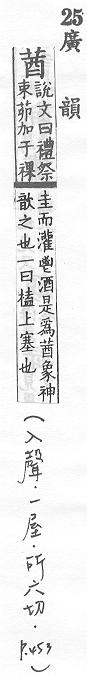 25 廣韻
莤 說文曰禮祭
束茆加于祼
圭而灌鬯酒是爲莤象神
歆之也一曰榼上塞也
(入聲·一屋·所六切·p.453)